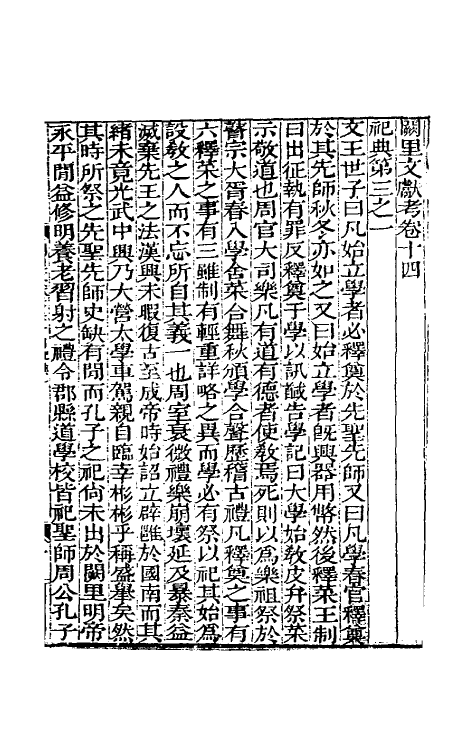 闕里文獻考卷十四
祀典第三之一
文王世子曰凡始立學者必釋奠於先聖先師又曰凡學春官釋奠
於其先師秋冬亦如之又曰始立學者旣興器用幣然後釋菜王制
曰出征執有罪反釋奠于學以訊馘告學記曰大學始敎皮弁祭菜
示敬道也周官大司樂凡有道有德者使敎焉死則以爲樂祖祭於
瞽宗大胥春入學舍菜合舞秋頒學合聲歷稽古禮凡釋奠之事有
六釋菜之事有三雖制有輕重詳略之異而學必有祭以祀其始爲
設敎之人而不忘所自其義一也周室衰微禮樂崩壞延及暴秦益
滅棄先王之法漢興未暇復古至成帝時始詔立辟雝於國南而其
緒未竟光武中興乃大營太學車駕親自臨幸彬彬乎稱盛舉矣然
其時所祭之先聖先師史缺有閒而孔子之祀尙未出於闕里明帝
永平閒益修明養老習射之禮令郡縣道學校皆祀聖師周公孔子